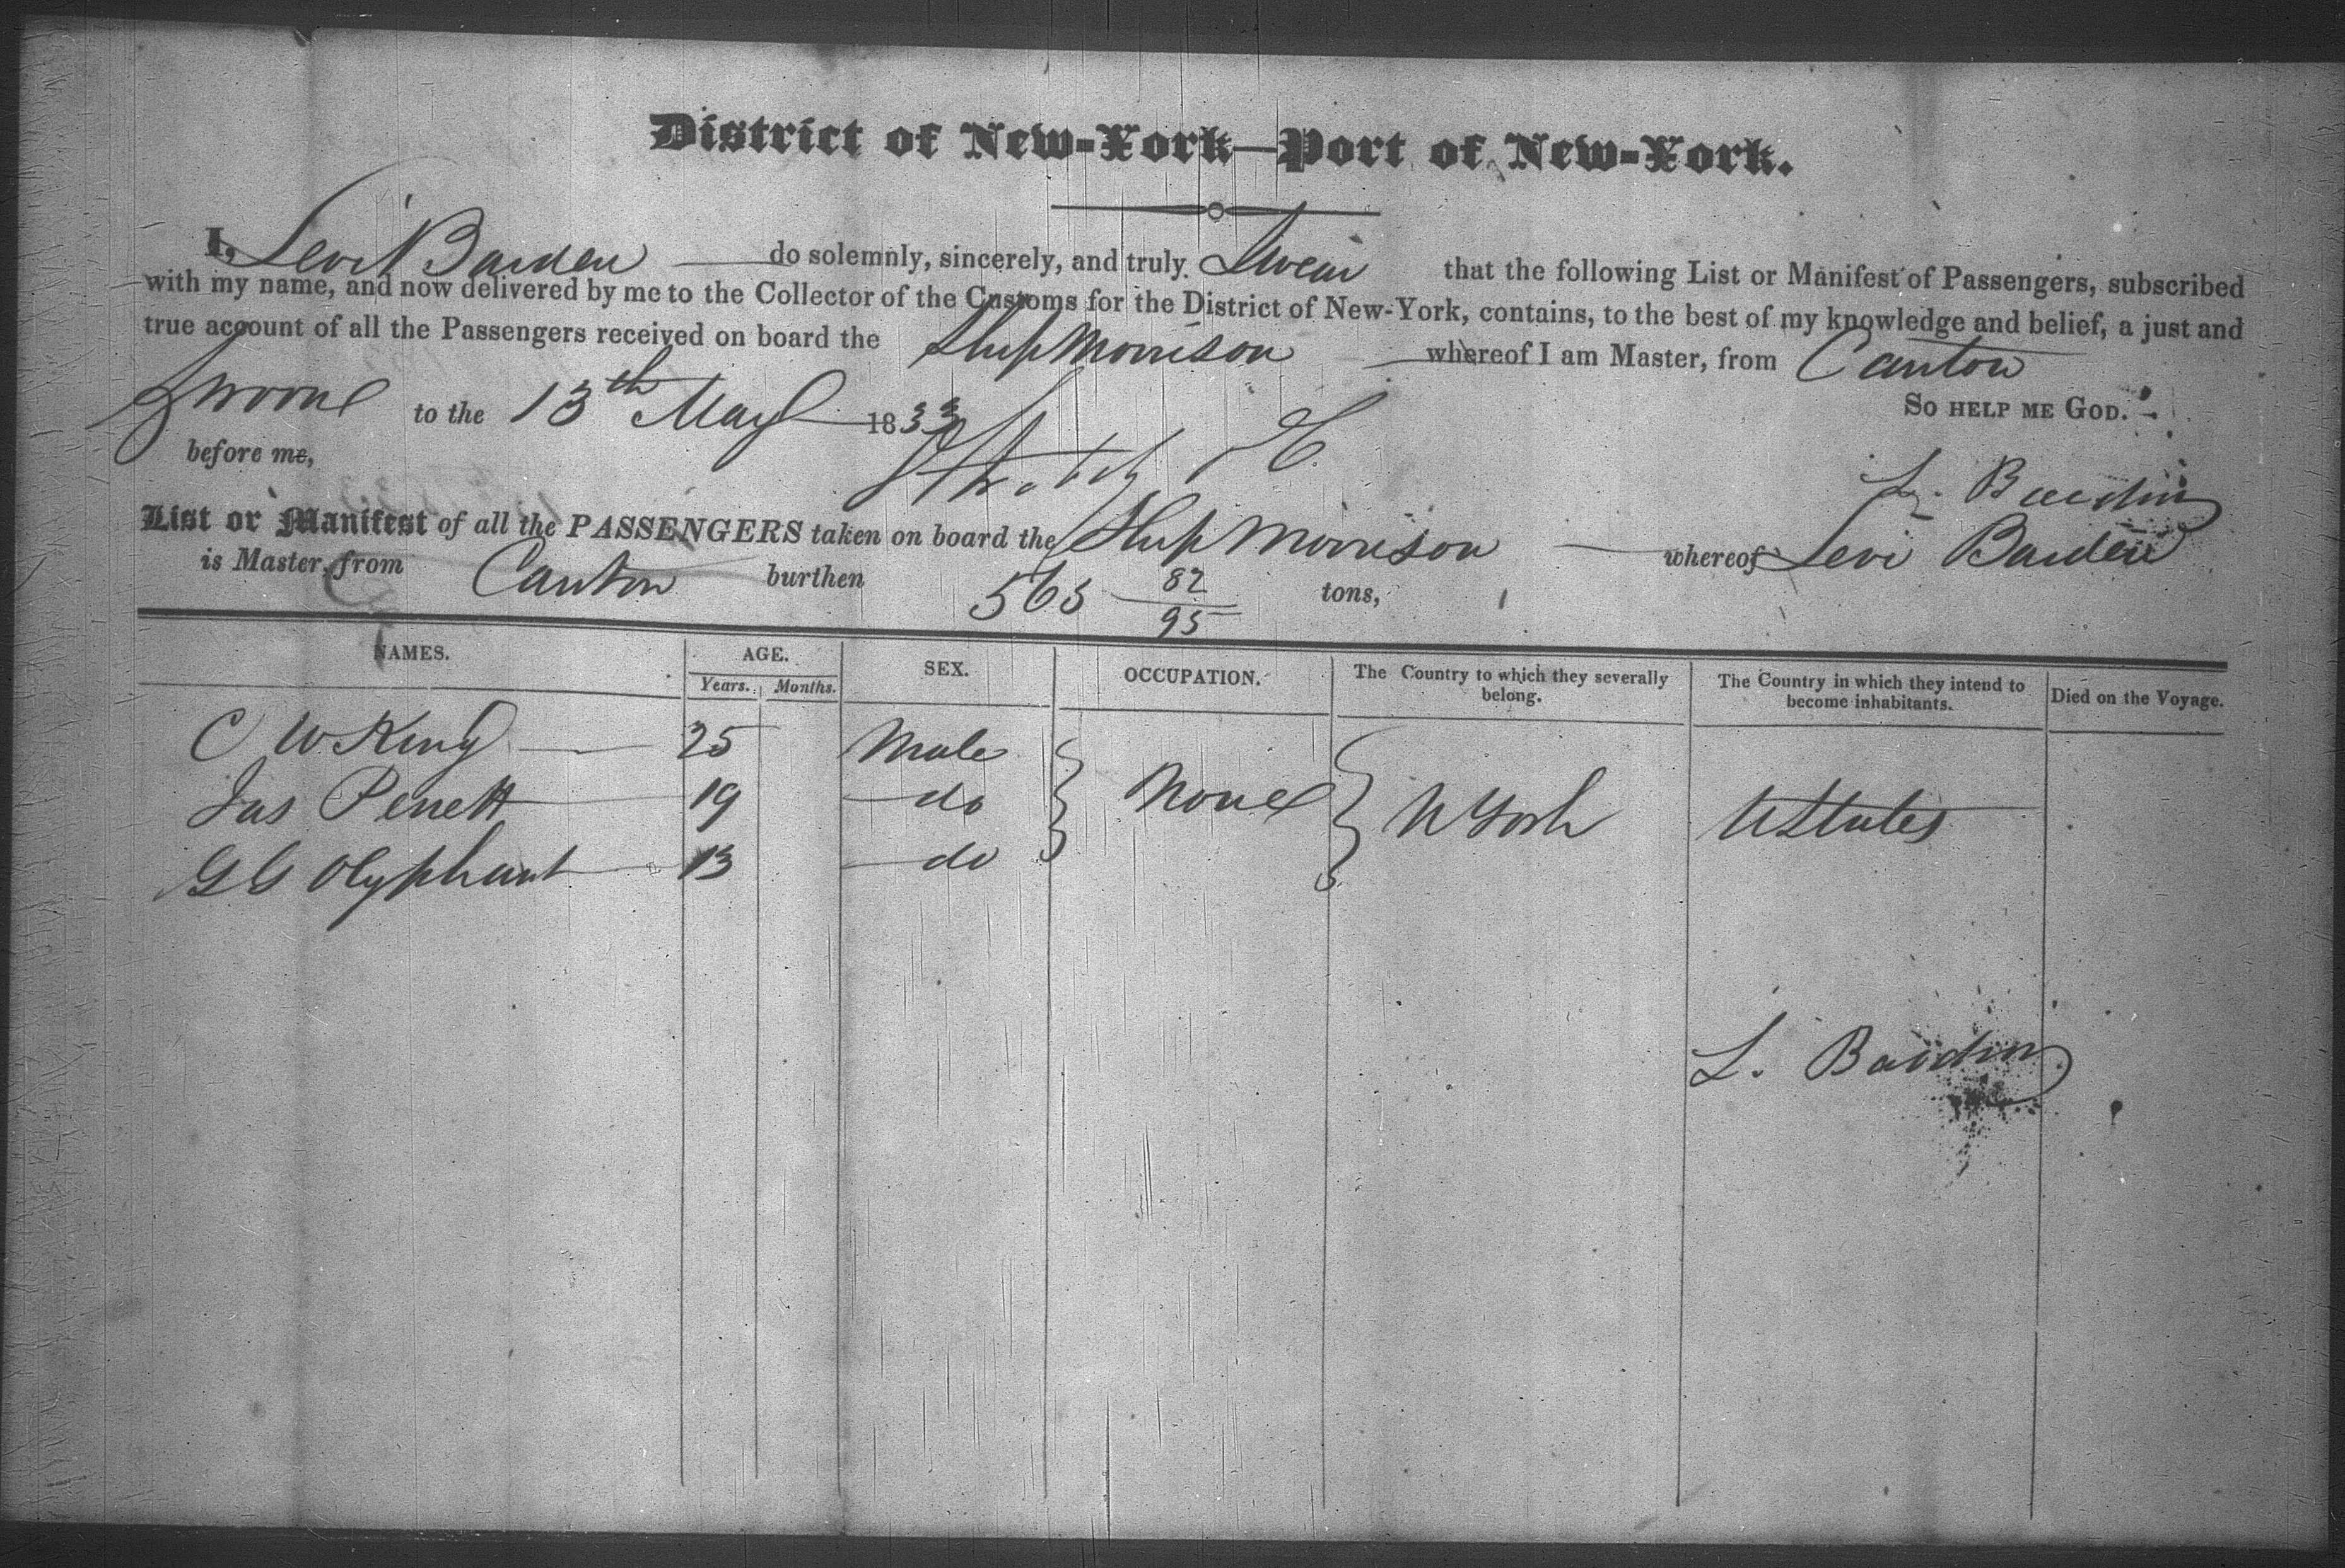 District of New-York—Port of New-York.
I, Levi Barden do solemnly, sincerely, and truly Swear that the following List or Manifest of Passengers, subscribed
with my name, and now delivered by me to the Collector of the Customs for the District of New-York, contains, to the best of my knowledge and belief, a just and
true account of all the Passengers received on board the Ship Morrison whereof I am Master, from Canton
Sworne to the 13th May 1833 So help me God.
before me,
L. Barden
List or Manifest of all the PASSENGERS taken on board the Ship Morrison whereof Levi Barden
is Master, from Canton burthen 563 82/95 tons,
NAMES. AGE. SEX. OCCUPATION. The Country to which they severally belong. The Country in which they intend to become inhabitants. Died on the Voyage.
Years. Months.
C W King 25 Male
Jas Perrett 19 do None N York U States
G G Olyphant 13 do
L. Barden